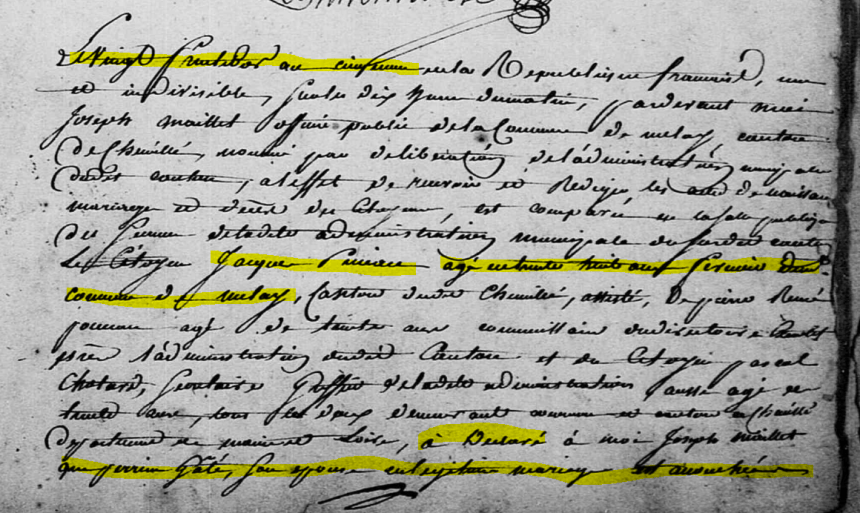 Le vingt fructidor an cinquieme de la Republique francaise, une
et indivisible, sur les dix heure du matin, pardevant moi
Joseph maillet officier public de la Commune de melay, canton
de Chemillé, nommé par deliberation de l'administration municipale
dudit canton, a l'effet de recevoir et Rediger les actes de naissance
mariage et décès des Citoyens, est comparu en la salle publique
des seances de ladite administration municipale du susdit canton
Le Citoyen Jacque agé de trente huit ans
commune de melay, Canton dudit Chemillé, assisté, De pierre René
agé de trente ans commissaire du directoire
près l'administration dudit Canton et du Citoyen pascal
Chotard, Secretaire Greffier de ladite administration aussi agé de
trente ans, tous les deux demeurant commune et canton de Chemillé
Departement de maine et Loire, à Declaré à moi Joseph maillet
que perrine Gâté, son epouse en legitime mariage est accouchée